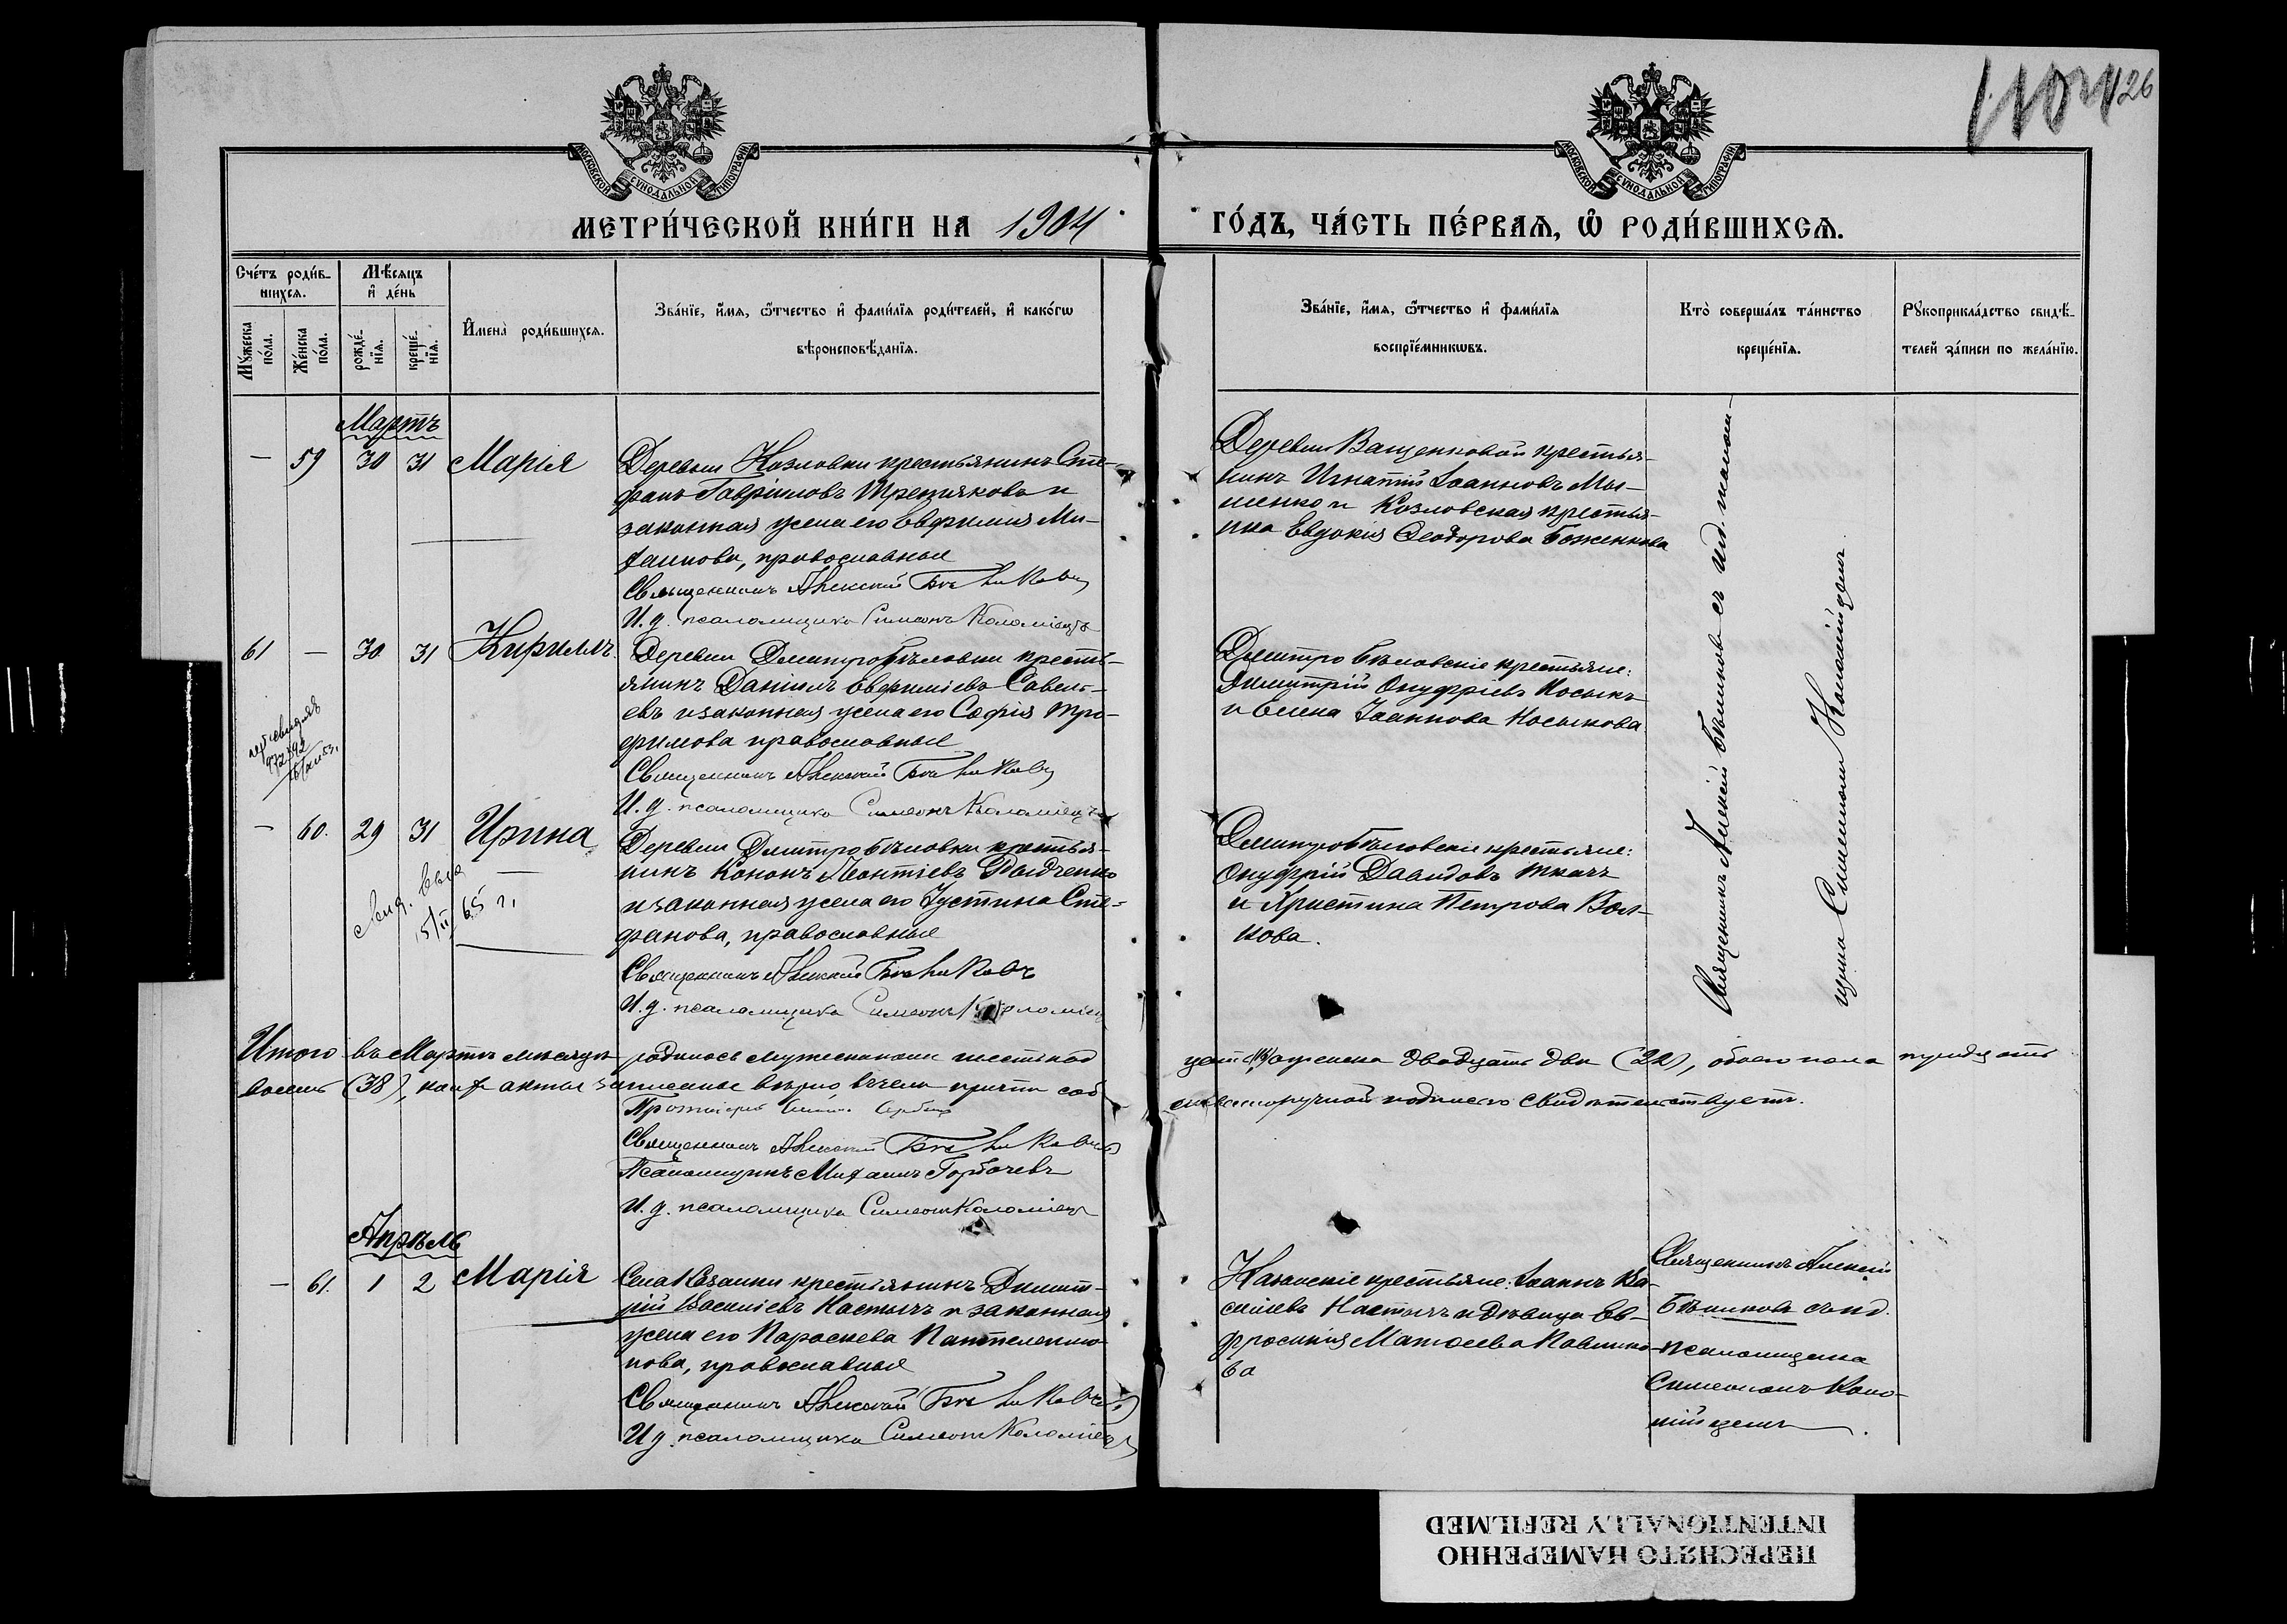 126
МОСКОВСКОЙ СѴНОДАЛЬНОЙ ТИПОГРАФІИ
МОСКОВСКОЙ СѴНОДАЛЬНОЙ ТИПОГРАФІИ
МЕТРИ́ЧЕСКОЙ КНИ́ГИ НА 1904 ГО́ДЪ, ЧА́СТЬ ПЕ́РВАѦ, Ѡ҆ РОДИ́ВШИХСѦ.
Сче́тъ роди́в-
шихсѧ.
Мꙋ́жеска по́ла.
Же́нска по́ла.
Мѣ́сѧцъ
и҆ де́нь
рожде́-
нїѧ.
креще́-
нїѧ.
И҆мена̀ роди́вшихсѧ.
Зва́нїе, и҆́мѧ, ѻ҆́тчество и҆ фами́лїѧ роди́телей, и҆ како́гѡ
вѣроисповѣ́данїѧ.
Зва́нїе, и҆́мѧ, ѻ҆́тчество и҆ фами́лїѧ
воспрїе́мникѡвъ.
Кто̀ соверша́лъ та́инство
креще́нїѧ.
Рꙋкоприкла́дство свидѣ́-
телей за́писи по жела́нїю.
Мартъ
— 59 30 31 Марія
Деревни Козловки крестьянинъ Сте-
фанъ Гавріиловъ Третяковъ и
законная жена его Евфимия Ми-
хаилова, православные
Священникъ Алексій Бѣликовъ
И. д. псаломщика Симеонъ Коломіецъ
Деревни Ващенковой крестья-
нинъ Игнатій Іоанновъ Мы-
шенко и Козловская крестья-
нка Евдокія Ѳеодорова Боженкова
61 — 30 31 Кириллъ
Деревни Дмитробѣловки кресть-
янинъ Даніилъ Евфиміевъ Савель-
евъ и законная жена его Софія Тро-
фимова православные
Священникъ Алексій Бѣликовъ
И. д. псаломщика Симеонъ Коломіецъ
Дмитробѣловскіе крестьяне:
Димитрій Онуфріевъ Косыкъ
и Елена Іоаннова Косыкова
— 60. 29 31 Ирина
15/II 65 г.
Деревни Дмитробѣловки крестья-
нинъ Кононъ Леонтіевъ
и законная жена его Іустина Сте-
фанова, православные
Священникъ Алексій Бѣликовъ
И. д. псаломщика Симеонъ Коломіецъ
Дмитробѣловскіе крестьяне:
Онуфрій Давидовъ Ткачъ
и Христина Петрова Вол-
кова.
Священникъ Алексій Бѣликовъ съ и.д. псалом-
щика Симеономъ Коломійцемъ.
Итого въ Мартѣ мѣсяцѣ родилось мужескаго шестнад
цать (16) женска двадцать два (22), обоего пола тридцать
восемь (38), акты записаны вѣрно въ чемъ причтъ соб
ственноручной подписью свидѣтельствуетъ.
Протоіерей
Священникъ Алексій Бѣликовъ
Псаломщикъ Михаилъ Горбачевъ
И. д. псаломщика Симеонъ Коломіецъ
Апрѣль
— 61. 1 2 Марія
Села Казанки крестьянинъ Димит-
рій Василіевъ Кастычъ и законная
жена его Параскева Пантелеимо-
нова, православные
Священникъ Алексій Бѣликовъ
И. д. псаломщика Симеонъ Коломіецъ
Казанскіе крестьяне: Іоаннъ Ва-
силіевъ Кастычъ и дѣвица Ев-
фросинія Матѳеева
ва
Священникъ Алексій
Бѣликовъ съ и.д.
псаломщика
Симеономъ Коло-
мійцемъ.
ПЕРЕСНЯТО НАМЕРЕННО
INTENTIONALLY REFILMED